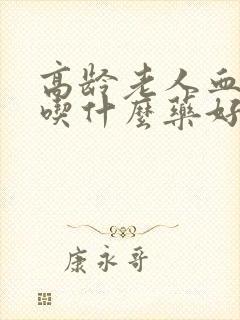 高龄老人血
喫什麼藥好
康永哥